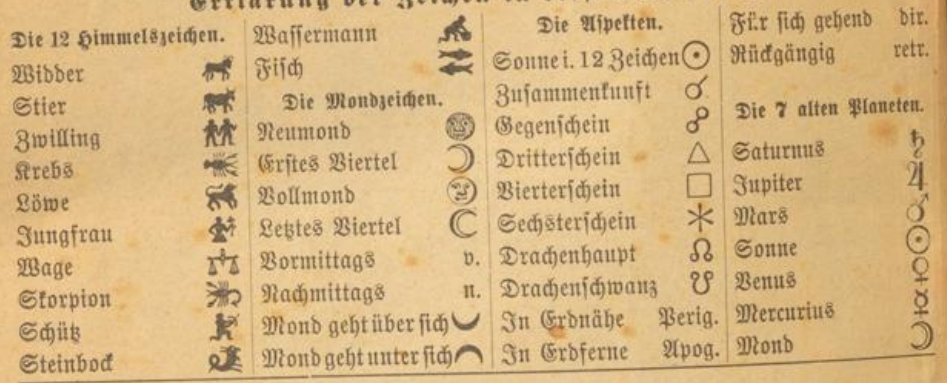 Erklärung der Zeichen in
Die 12 Himmelszeichen.
Widder
Stier
Zwilling
Krebs
Löwe
Jungfrau
Wage
Skorpion
Schütz
Steinbock
Wassermann
Fisch
Die Mondzeichen.
Neumond
Erstes Viertel ☽
Vollmond
Letztes Viertel ☾
Vormittags v.
Nachmittags n.
Mond geht über sich
Mond geht unter sich
Die Aspekten.
Sonne i. 12 Zeichen ☉
Zusammenkunft ☌
Gegenschein ☍
Dritterschein △
Vierterschein □
Sechsterschein ⚹
Drachenhaupt ☊
Drachenschwanz ☋
In Erdnähe Perig.
In Erdferne Apog.
Für sich gehend dir.
Rückgängig retr.
Die 7 alten Planeten.
Saturnus ♄
Jupiter ♃
Mars ♂
Sonne ☉
Venus ♀
Mercurius ☿
Mond ☽